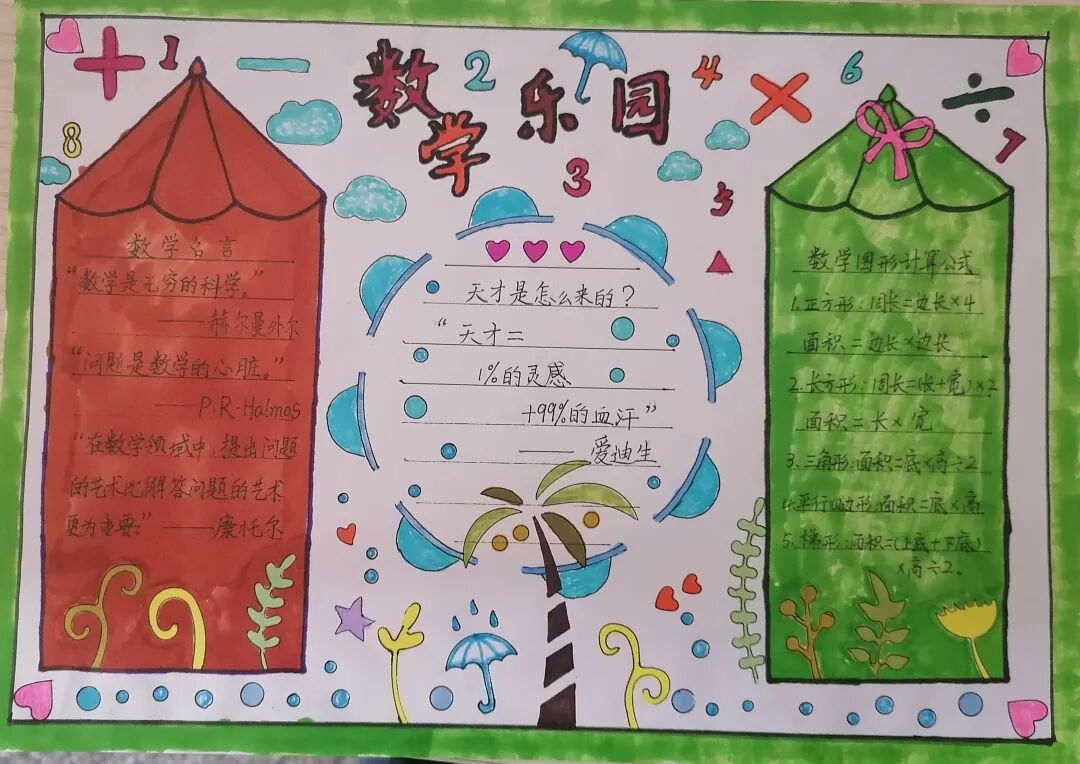 数学乐园
1
2
3
4
5
6
7
8
+
−
×
÷
数学名言
“数学是无穷的科学。”
——赫尔曼外尔
“问题是数学的心脏。”
——P.R.Halmos
“在数学领域中,提出问题
的艺术比解答问题的艺术
更为重要。”——康托尔
天才是怎么来的?
“天才=
1%的灵感
+99%的血汗”
—— 爱迪生
数学图形计算公式
1.正方形:周长=边长×4
面积=边长×边长
2.长方形:周长=(长+宽)×2
面积=长×宽
3.三角形:面积=底×高÷2
4.平行四边形:面积=底×高.
5.梯形:面积=(上底+下底)
×高÷2.